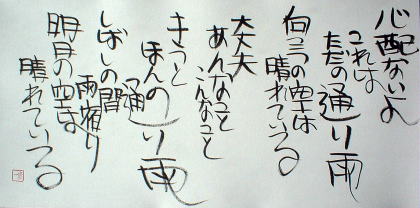 心配ないよ
これは
ただの通り雨
向こうの空は
晴れている
大丈夫
あんなこと
こんなこと
きっと
ほんの
通り雨
しばしの間
雨宿り
明日の空は
晴れている